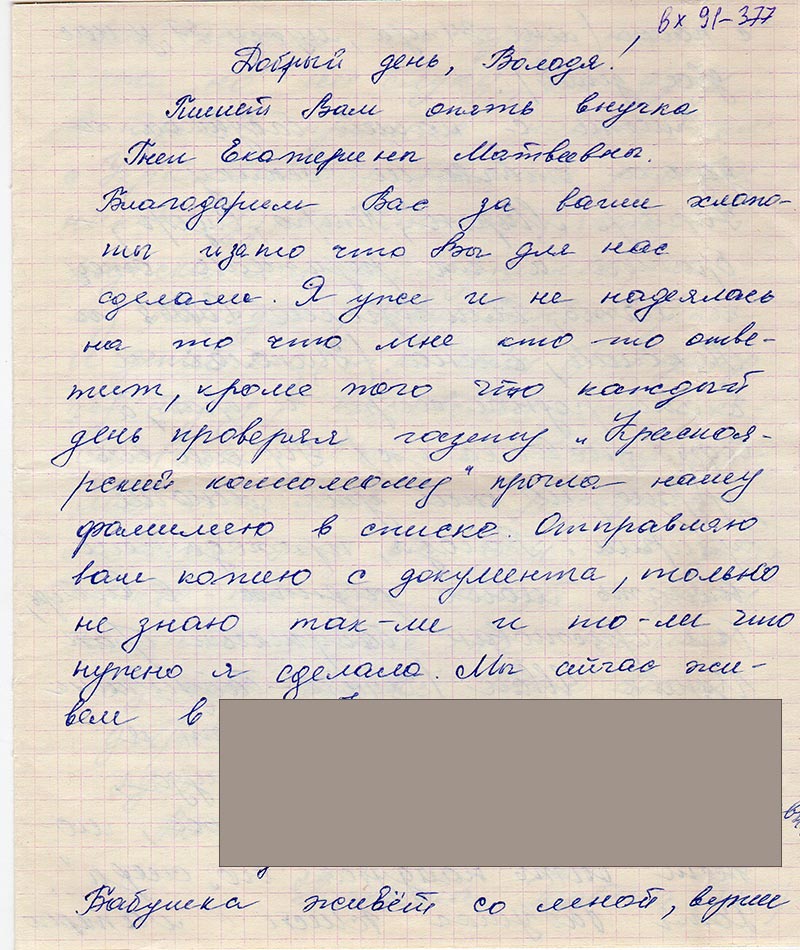 вх 91-377
Добрый день, Володя!
Пишет Вам опять внучка
Гнеи Екатерины Матвеевны.
Благодарим Вас за ваши хлопо-
ты изато что Вы для нас
сделали. Я уже и не надеялась
на то что мне кто-то отве-
тит, кроме того что каждый
день проверял газету „Красноя-
рский комсомолец" прочла нашу
фамилию в списке. Отправляю
вам копию с документа, только
не знаю так-ли и то-ли что
нужно я сделала. Мы сичас жи-
вем в
Бабушка живёт со мной,